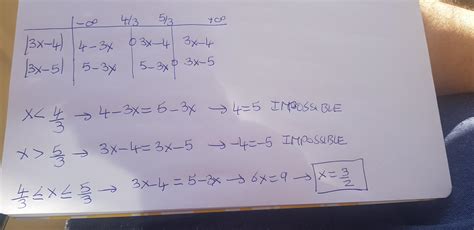 -∞ 4/3 5/3 +∞
|3x-4| 4-3x 0 3x-4 3x-4
|3x-5| 5-3x 5-3x 0 3x-5
x < 4/3 → 4-3x = 5-3x → 4=5 IMPOSSIBLE
x > 5/3 → 3x-4 = 3x-5 → -4=-5 IMPOSSIBLE
4/3 ≤ x ≤ 5/3 → 3x-4 = 5-3x → 6x=9 → x = 3/2